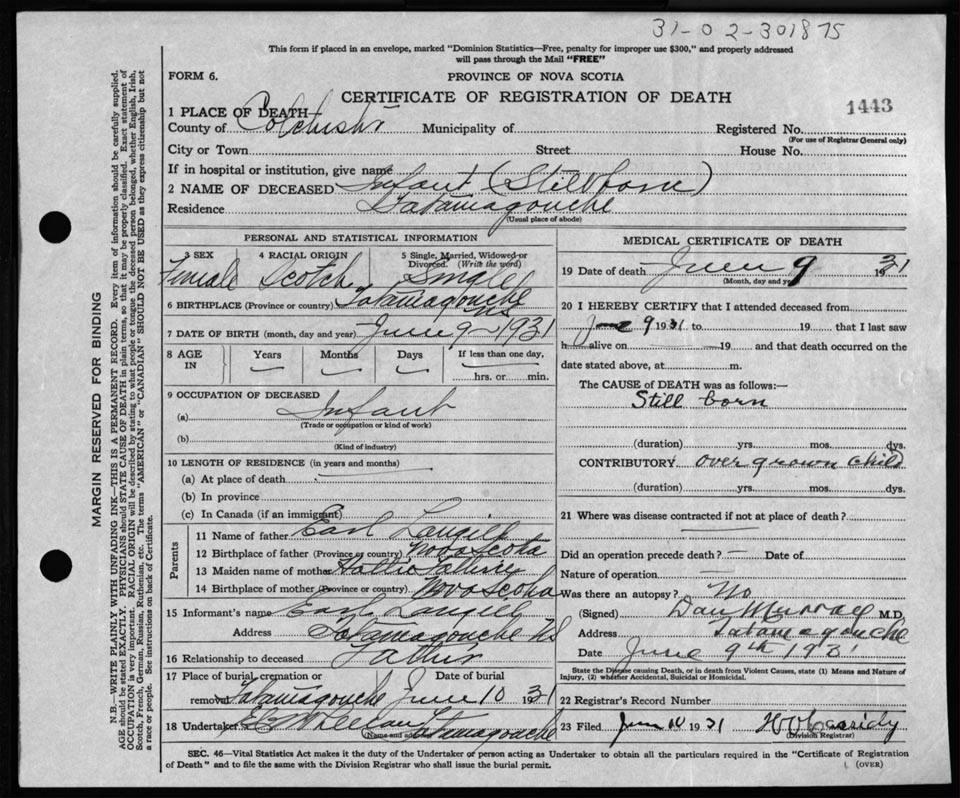 31-02-301875
This form if placed in an envelope, marked "Dominion Statistics—Free, penalty for improper use $300," and properly addressed
will pass through the Mail "FREE"
FORM 6.
PROVINCE OF NOVA SCOTIA
CERTIFICATE OF REGISTRATION OF DEATH
1443
1 PLACE OF DEATH
County of Colchester Municipality of Registered No.
(For use of Registrar General only)
City or Town Street House No.
If in hospital or institution, give name
2 NAME OF DECEASED Infant (Stillborn)
Residence Tatamagouche
(Usual place of abode)
PERSONAL AND STATISTICAL INFORMATION
3 SEX 4 RACIAL ORIGIN 5 Single, Married, Widowed or
Divorced. (Write the word)
Female Scotch Single
6 BIRTHPLACE (Province or country) Tatamagouche
NS
7 DATE OF BIRTH (month, day and year) June 9 - 1931
8 AGE IN Years Months Days If less than one day,
— — — hrs. or min.
9 OCCUPATION OF DECEASED
(a) Infant
(Trade or occupation or kind of work)
(b)
(Kind of industry)
10 LENGTH OF RESIDENCE (in years and months)
(a) At place of death
(b) In province
(c) In Canada (if an immigrant)
Parents
11 Name of father Earl Langill
12 Birthplace of father (Province or country) Nova Scotia
13 Maiden name of mother Hattie
14 Birthplace of mother (Province or country) Nova Scotia
15 Informant's name Earl Langill
Address Tatamagouche NS
16 Relationship to deceased Father
17 Place of burial, cremation or Date of burial
removal Tatamagouche June 10 1931
18 Undertaker Tatamagouche
(Name and address)
MEDICAL CERTIFICATE OF DEATH
19 Date of death June 9 1931
(Month, day and year)
20 I HEREBY CERTIFY that I attended deceased from
June 9 1931 to 19 that I last saw
h alive on 19 and that death occurred on the
date stated above, at m.
The CAUSE OF DEATH was as follows:—
Still born
(duration) yrs. mos. dys.
CONTRIBUTORY over grown child
(duration) yrs. mos. dys.
21 Where was disease contracted if not at place of death?
Did an operation precede death? — Date of
Nature of operation —
Was there an autopsy? No
(Signed) Dan Murray M.D.
Address Tatamagouche
Date June 9th 1931
State the Disease causing Death, or in death from Violent Causes, state (1) Means and Nature of
Injury, (2) whether Accidental, Suicidal or Homicidal.
22 Registrar's Record Number
23 Filed June 10 1931 Cassidy
(Division Registrar)
SEC. 46—Vital Statistics Act makes it the duty of the Undertaker or person acting as Undertaker to obtain all the particulars required in the "Certificate of Registration
of Death" and to file the same with the Division Registrar who shall issue the burial permit.
(OVER)
MARGIN RESERVED FOR BINDING
N.B.—WRITE PLAINLY WITH UNFADING INK—THIS IS A PERMANENT RECORD. Every item of information should be carefully supplied.
AGE should be stated EXACTLY. PHYSICIANS should STATE CAUSE OF DEATH in plain terms, so that it may be properly classified. Exact statement of
OCCUPATION is very important. RACIAL ORIGIN will be described by stating to what people or tongue the deceased person belonged, whether English, Irish,
Scotch, French, German, Russian, Ruthenian, etc. The terms "AMERICAN" or "CANADIAN" SHOULD NOT BE USED as they express citizenship but not
a race or people. See instructions on back of Certificate.